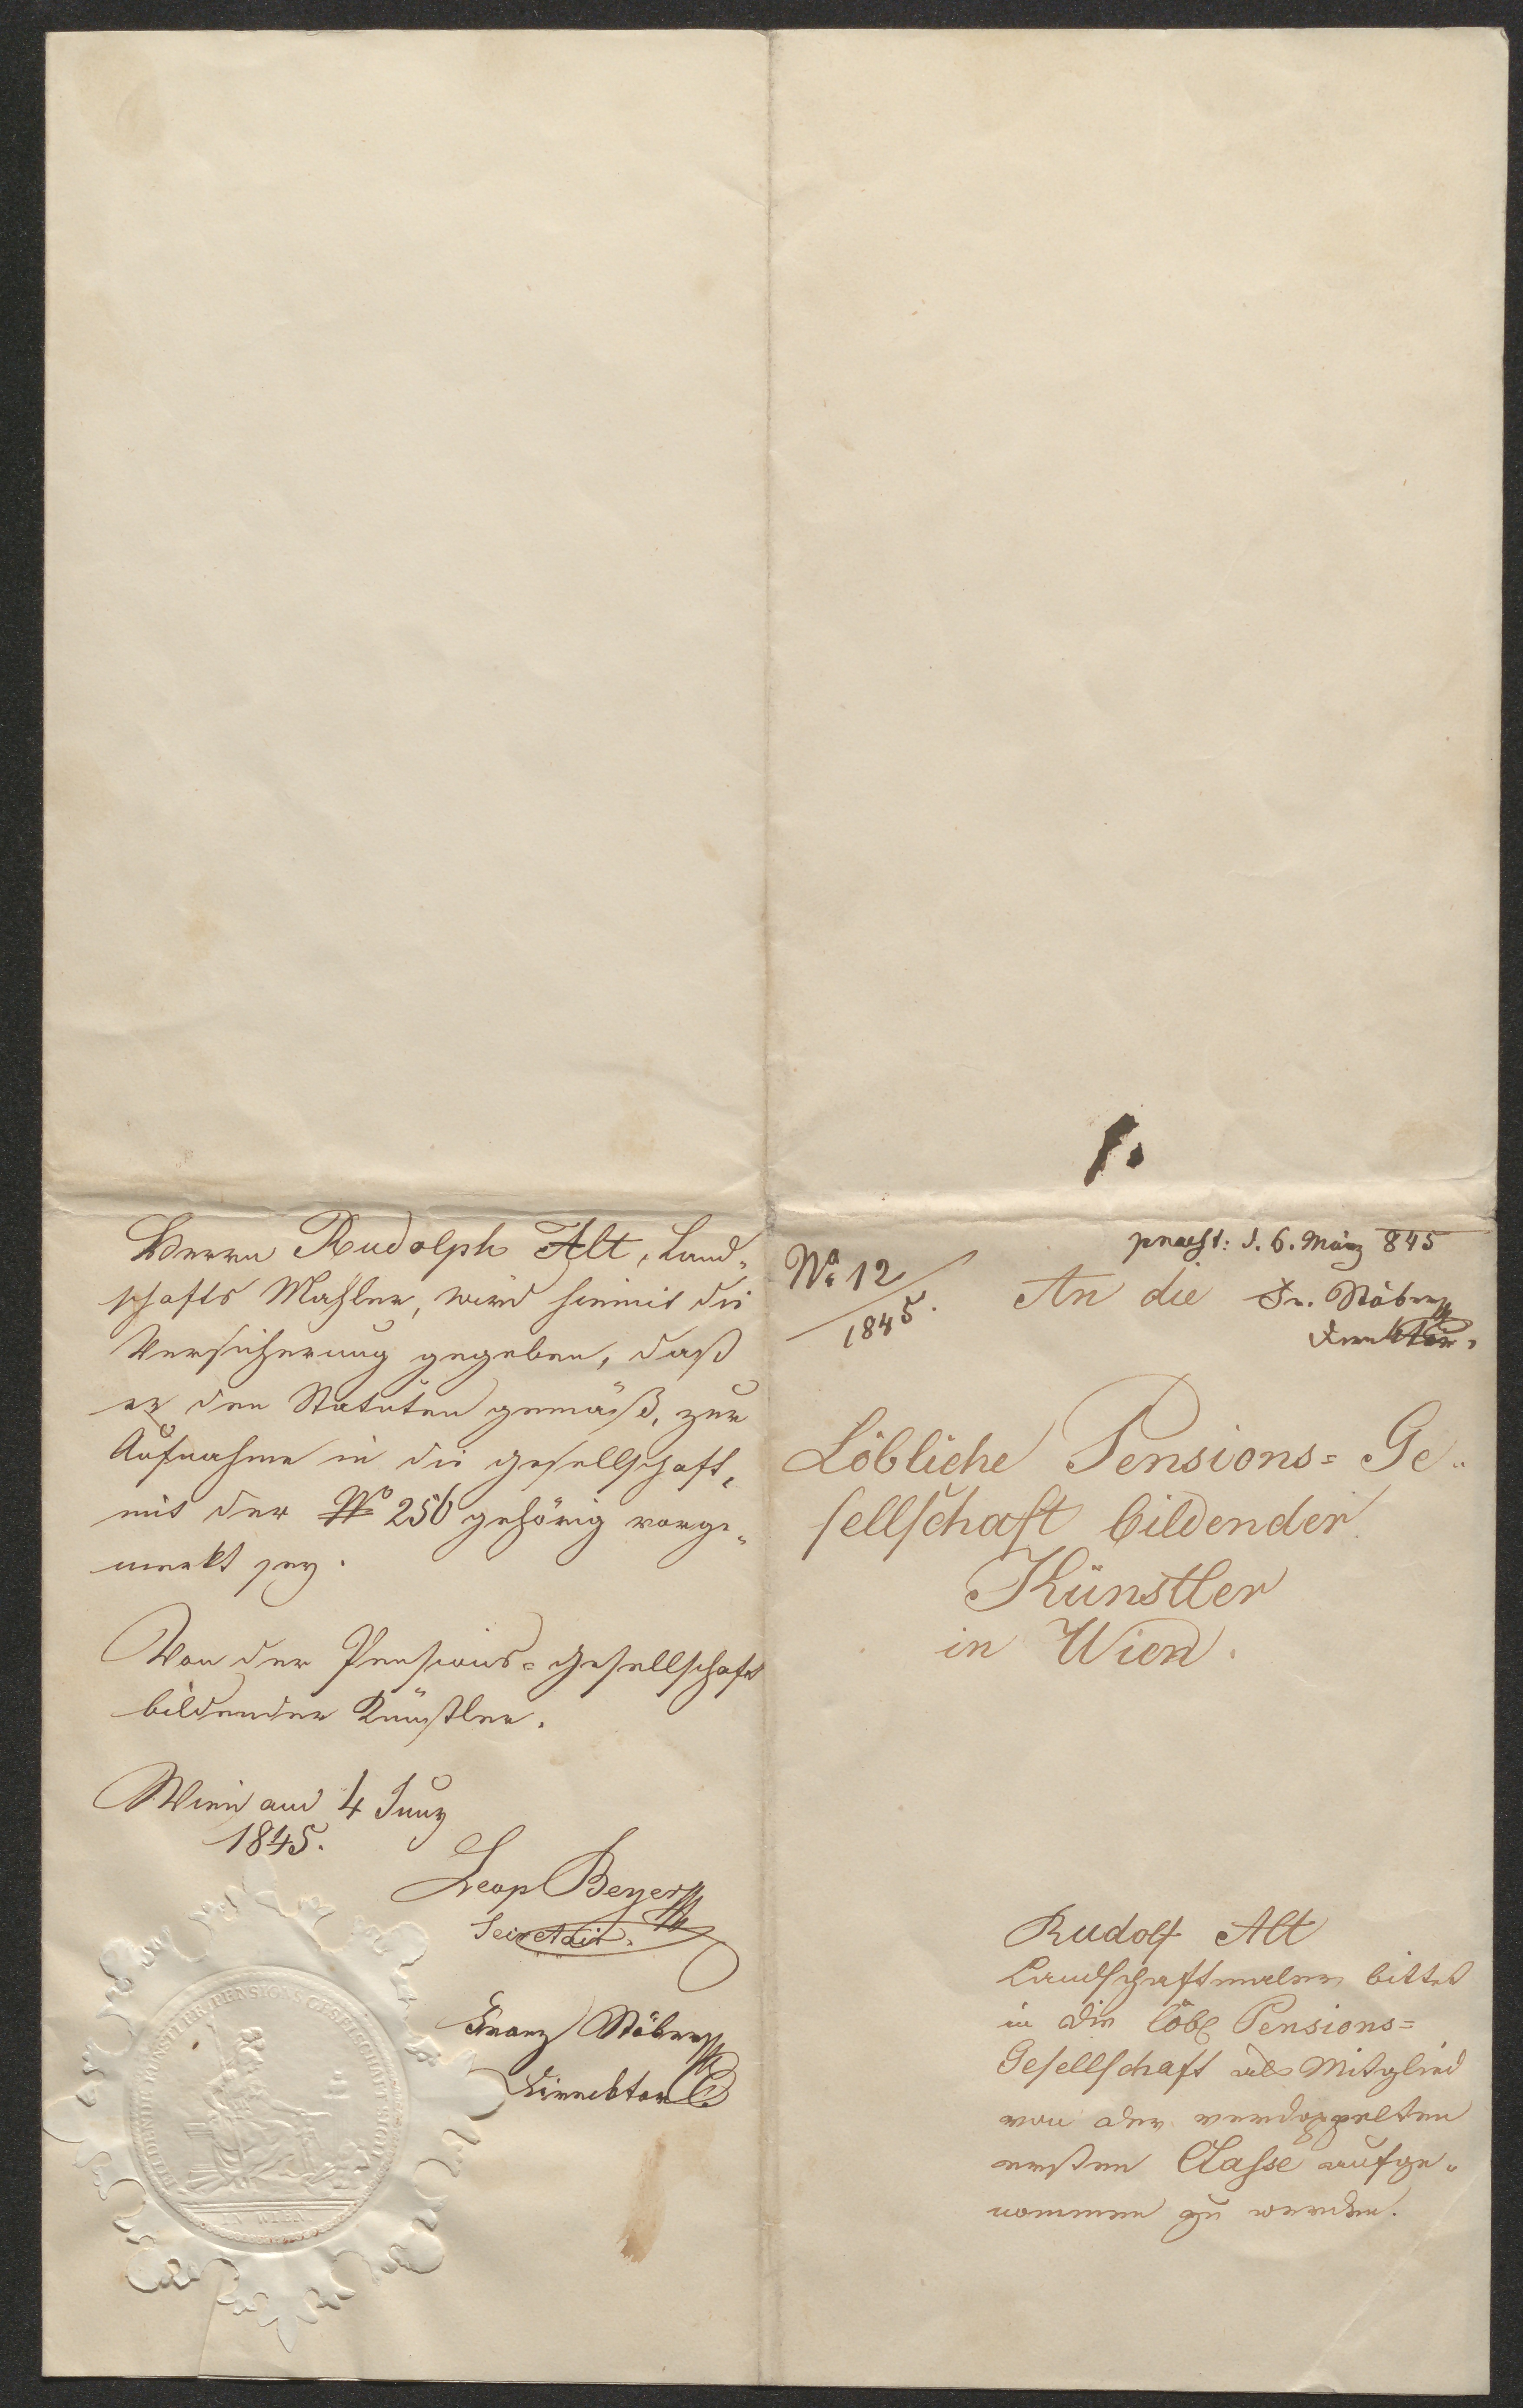 Herrn Rudolph Alt, Land„
schafts Mahler, wird hiemit die
Versicherung gegeben, daß
er den Statuten gemäß, zur
Aufnahme in die Gesellschaft,
mit der No 256 gehörig vorge„
merkt sey.
Von der Pensions-Gesellschaft
bildender Künstler.
Wien am 4 Juny
1845.
Leop Beyer
Secretair.
Franz Stöber
Direktor
BILDENDER KÜNSTLER PENSIONS GESELLSCHAFT SIGILL
IN WIEN
1.
praest: d. 6. März 845
No 12
1845.
An die
Fr. Stöber
Direktor.
Löbliche Pensions= Ge„
sellschaft bildender
Künstler
in Wien.
Rudolf Alt
Landschaftmaler bittet
in die löbl Pensions=
Gesellschaft als Mitglied
von der verdoppelten
ersten Classe aufge„
nommen zu werden.